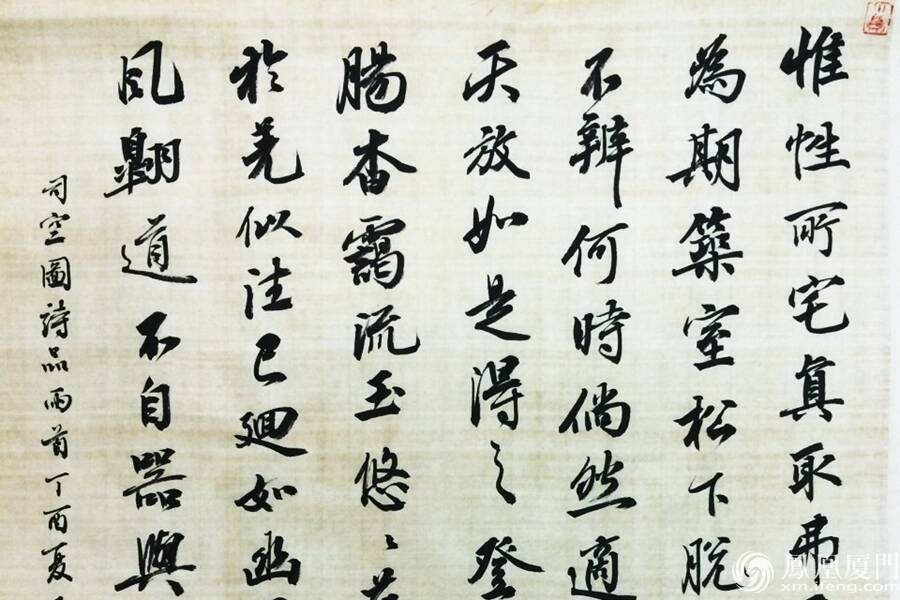 惟性所宅真取弗
為期築室松下脫
不辨何時倘然適
天放如是得之登
腸杳靄流玉悠〻
於羌似往已迴如幽
風翺道不自器與
司空圖詩品兩首丁酉夏
鳳凰厦門
xm.ifeng.com